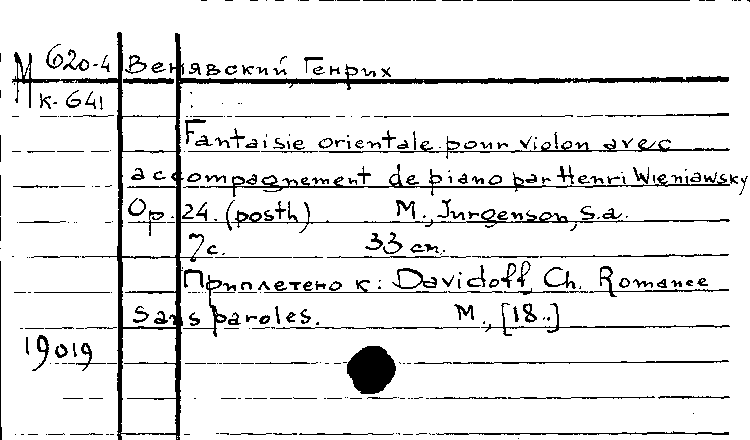 М 620-4 Венявский, Генрих
К-641
Fantaisie orientale pour violon avec
accompagnement de piano par Henri Wieniawsky
Op. 24. (posth) M., Jurgenson, s.a.
7 с. 33 cm.
Приплетено к: Davidoff, Ch. Romance
sans paroles. M., [18..]
19019